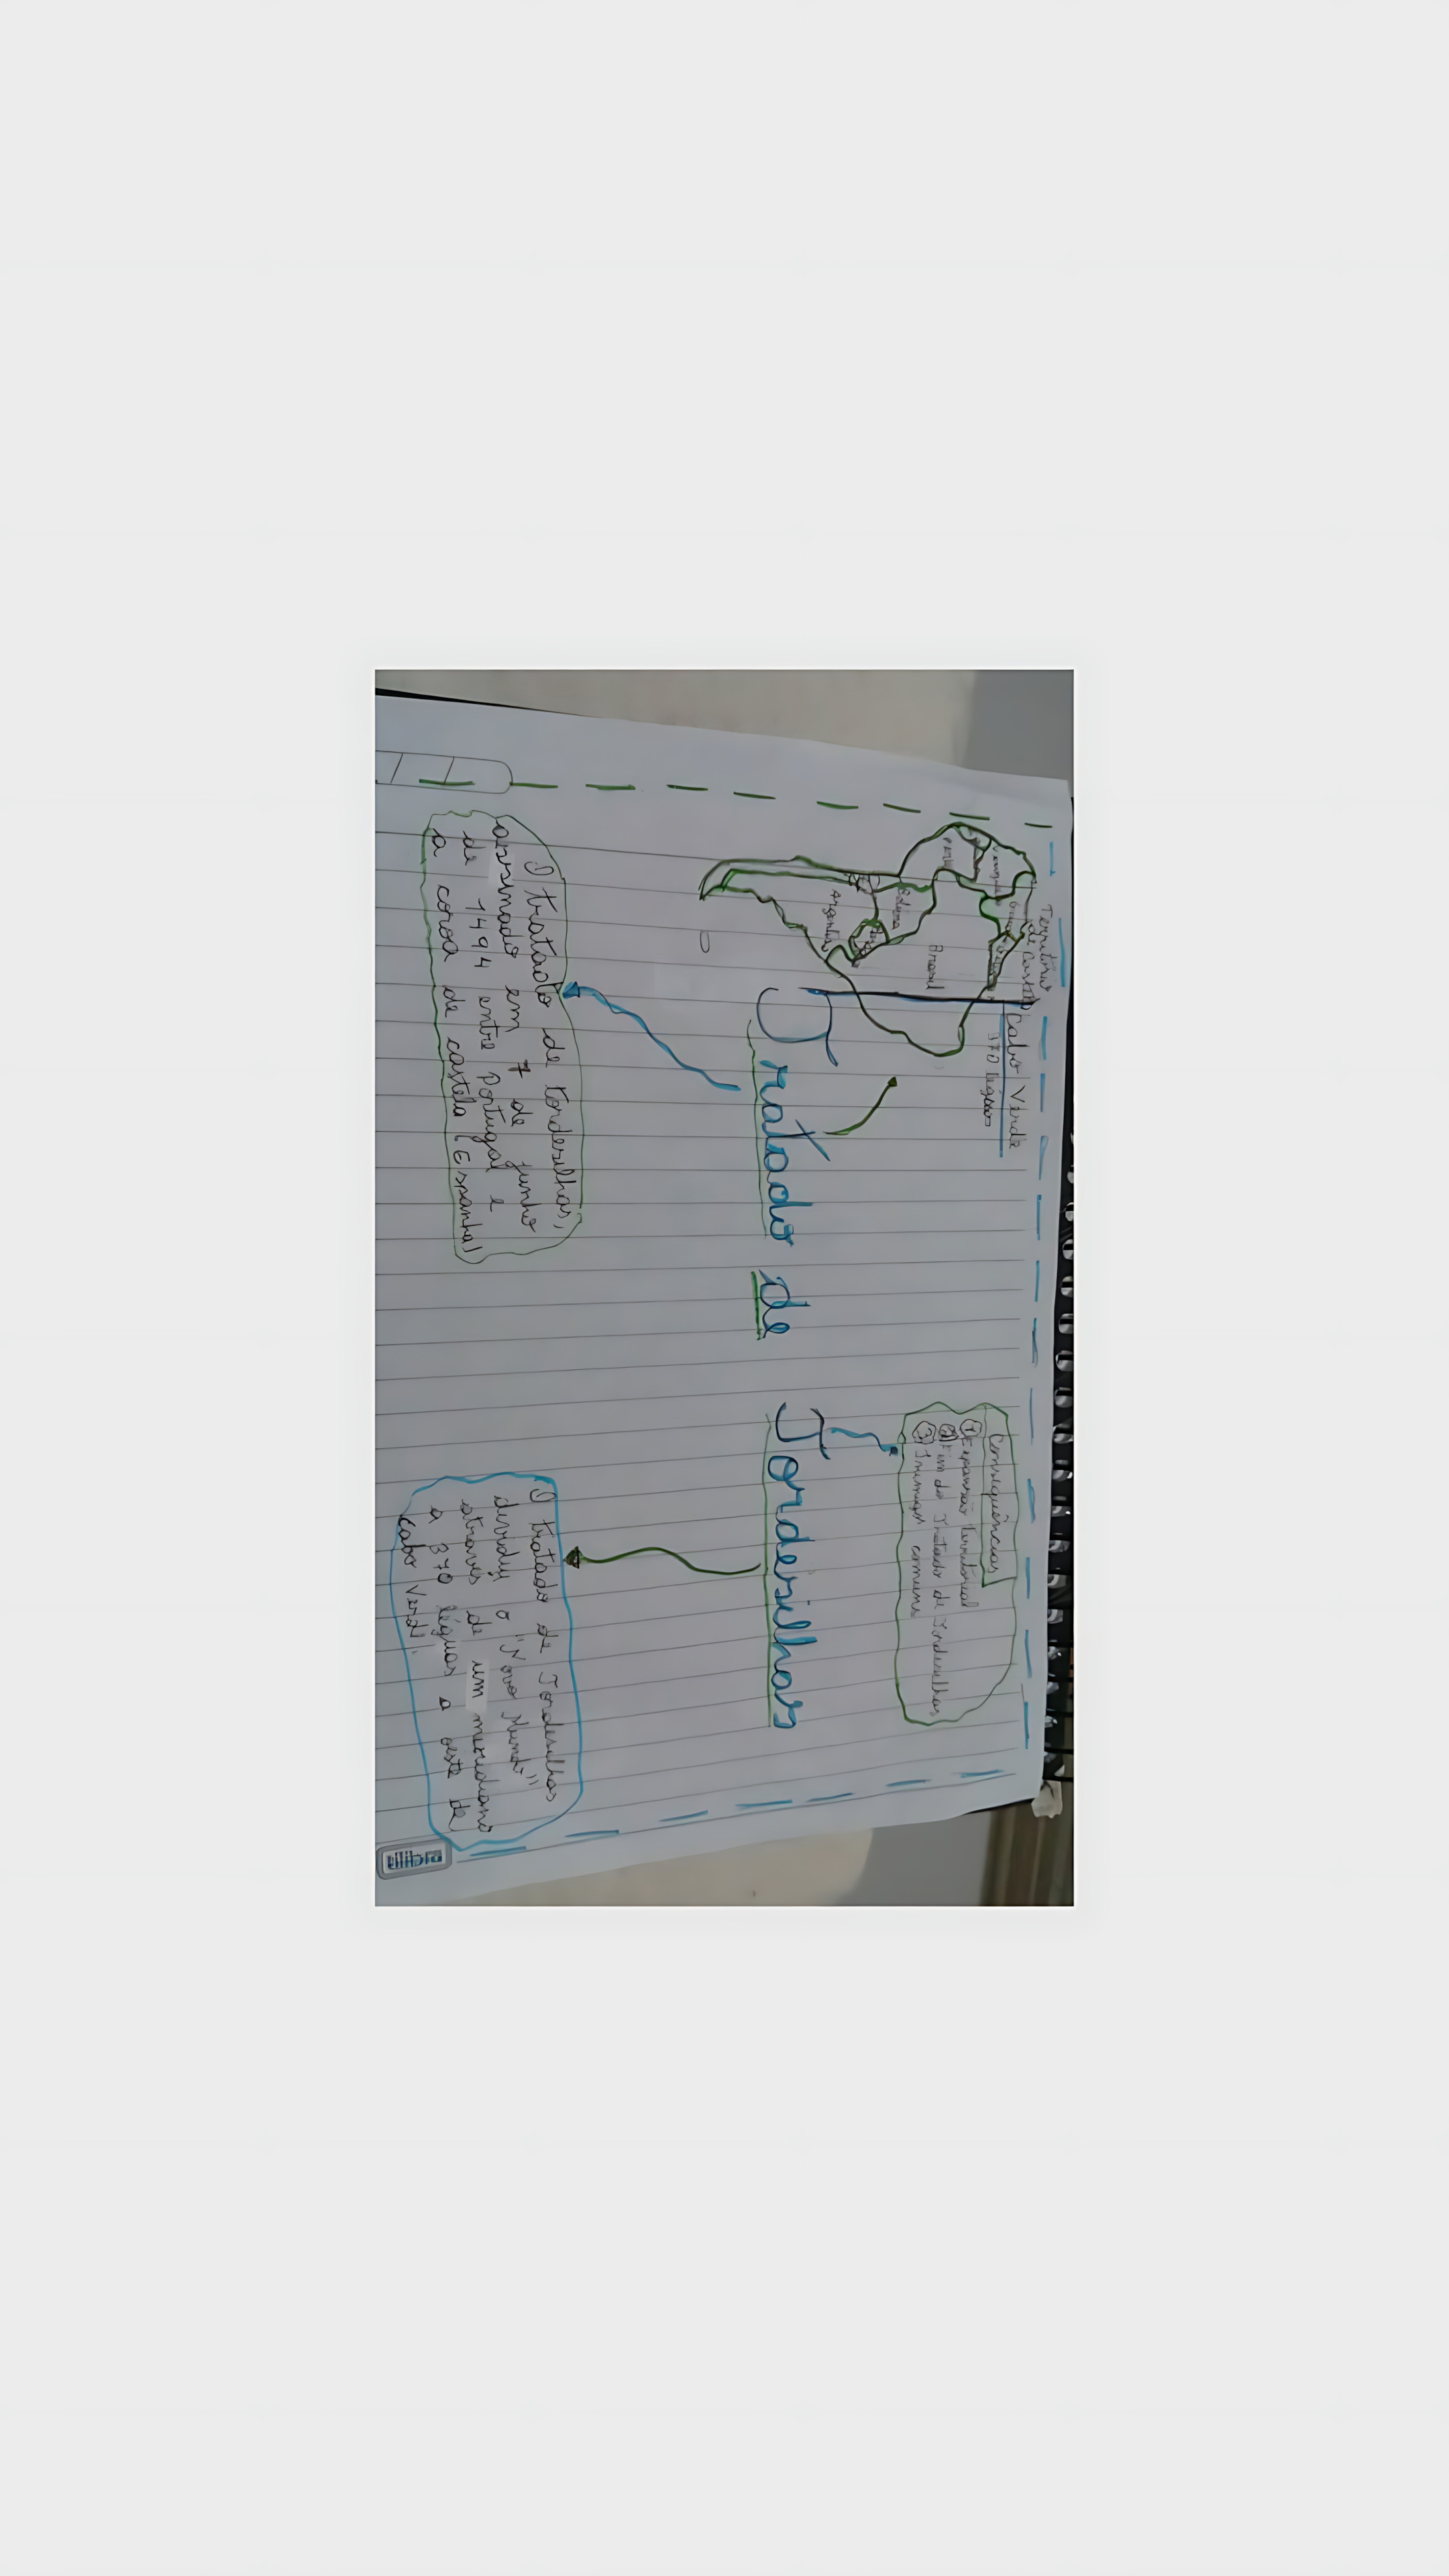 Território
de Castela
Cabo Verde
370 léguas
Peru
Brasil
Bolívia
Argentina
Consequências
1 Expansão territorial
2 Fim do Tratado de Tordesilhas
3 Inimigos comuns
Tratado de Tordesilhas
O tratado de tordesilhas,
assinado em 7 de junho
de 1494 entre Portugal e
a coroa de castela (Espanha)
O tratado de Tordesilhas
dividiu o "Novo Mundo"
através de um meridiano
a 370 léguas a oeste de
Cabo Verde.